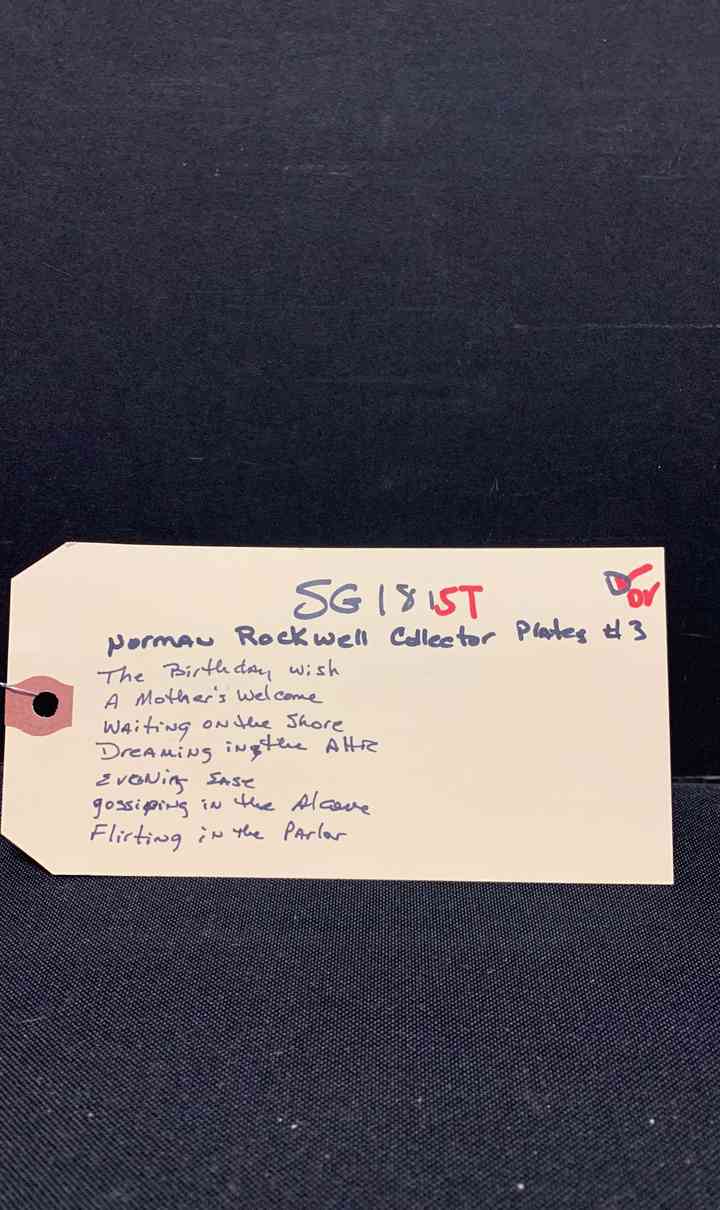 SG1815T
Norman Rockwell Collector Plates #3
The Birthday Wish
A Mother's Welcome
Waiting on the Shore
Dreaming in the Attic
Evening Ease
gossiping in the Alcove
Flirting in the Parlor